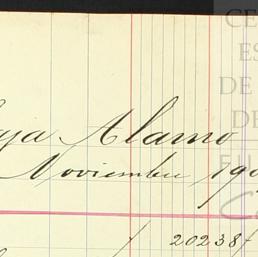 Alamo
Noviembre 190
20238
CE
ES
DE
DE
FI
C